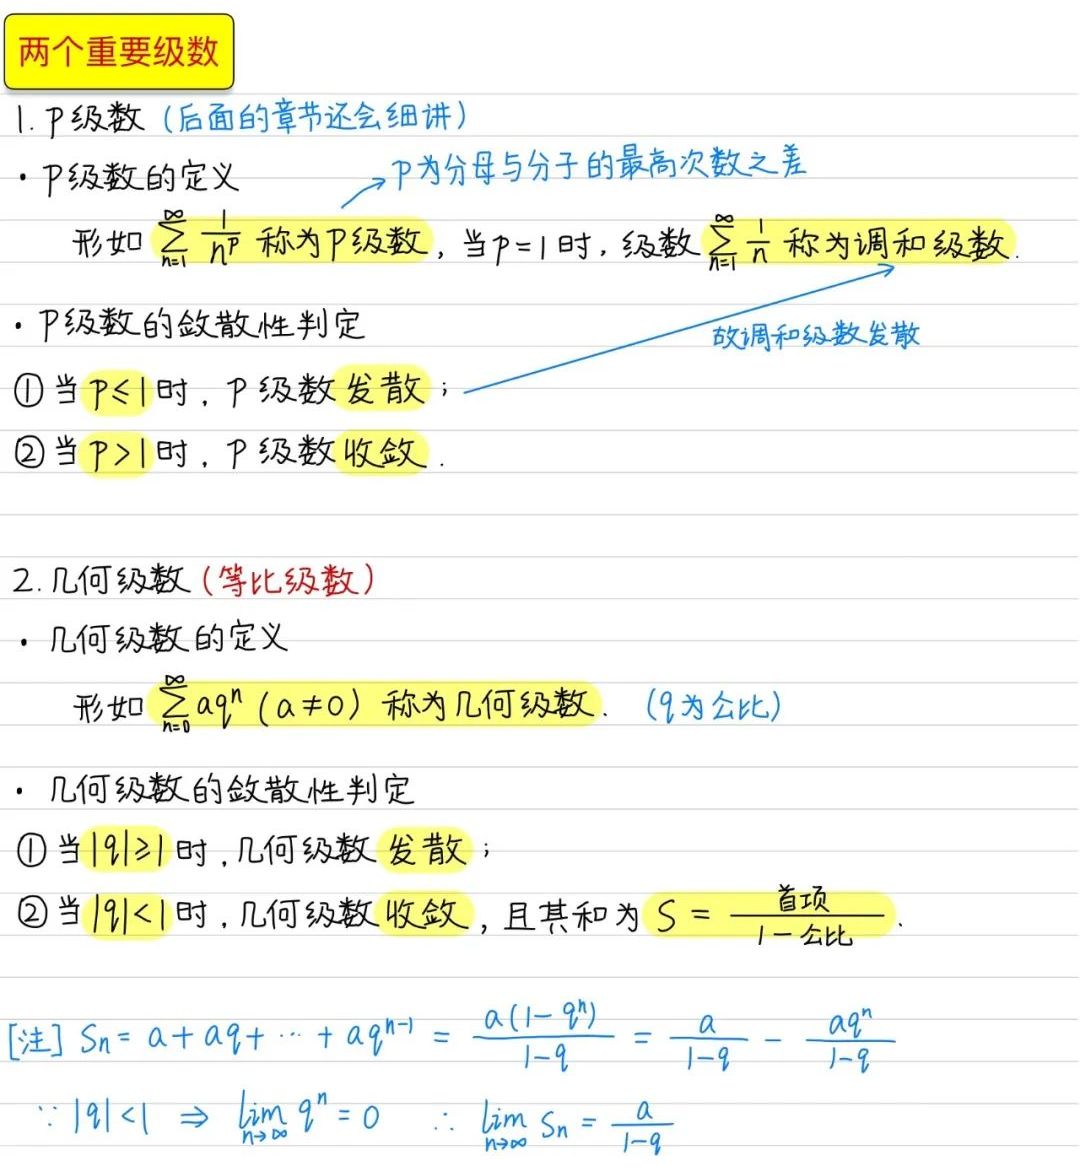 两个重要级数
1. P级数（后面的章节还会细讲）
· P级数的定义
P为分母与分子的最高次数之差
形如 $\sum_{n=1}^{\infty} \frac{1}{n^p}$ 称为P级数，当p=1时，级数 $\sum_{n=1}^{\infty} \frac{1}{n}$ 称为调和级数.
· P级数的敛散性判定
故调和级数发散
① 当 P≤1 时，P级数发散；
② 当 P>1 时，P级数收敛.
2. 几何级数（等比级数）
· 几何级数的定义
形如 $\sum_{n=0}^{\infty} aq^n$ (a≠0) 称为几何级数.（q为公比）
· 几何级数的敛散性判定
① 当 |q|≥1 时，几何级数发散；
② 当 |q|<1 时，几何级数收敛，且其和为 $S = \frac{首项}{1-公比}$.
[注] $S_n = a + aq + \cdots + aq^{n-1} = \frac{a(1-q^n)}{1-q} = \frac{a}{1-q} - \frac{aq^n}{1-q}$
∵ |q|<1 ⇒ $\lim_{n\to\infty} q^n = 0$ ∴ $\lim_{n\to\infty} S_n = \frac{a}{1-q}$